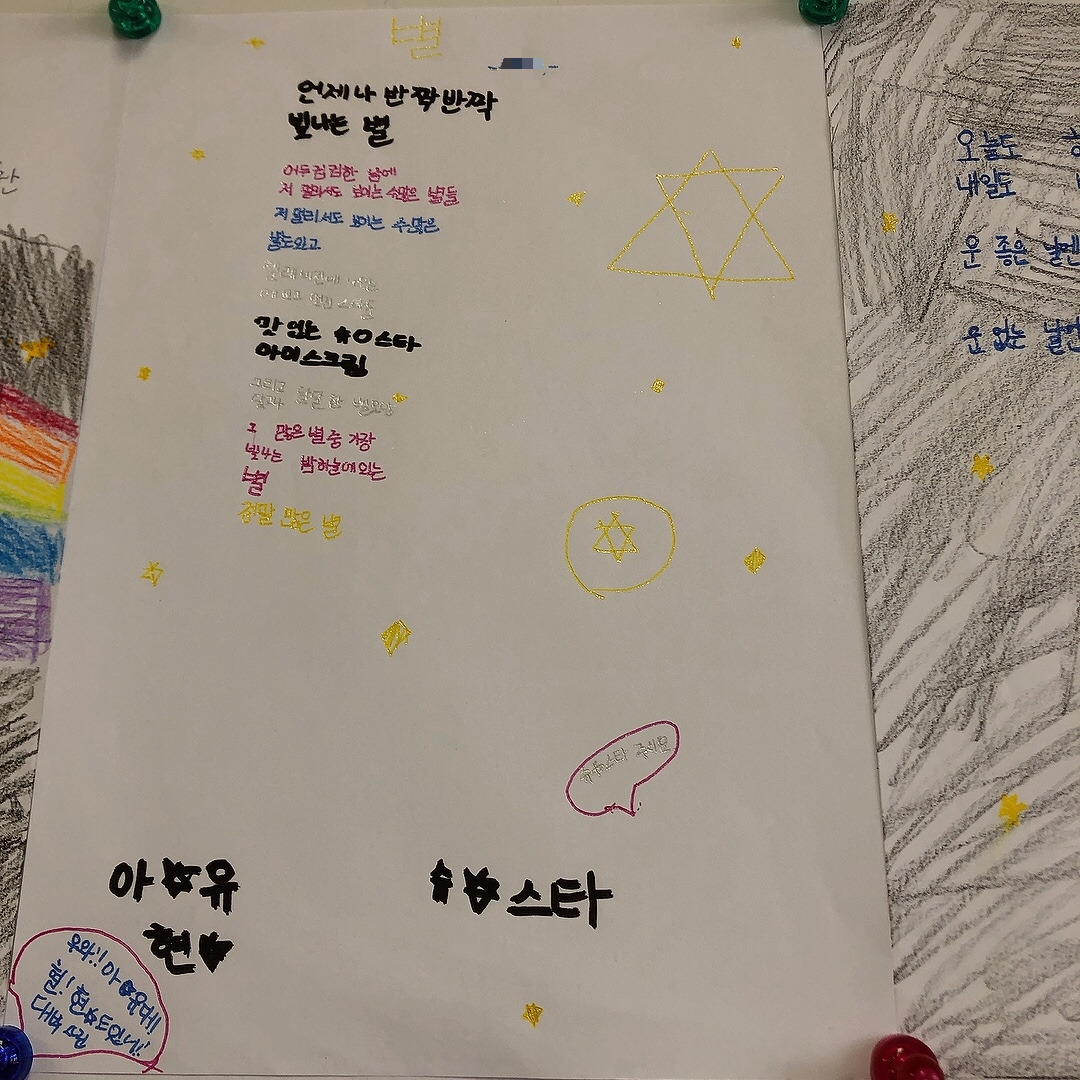 별
언제나 반짝반짝
빛나는 별
어두컴컴한 밤에
저 멀리서도 보이는 수많은 별들
저 멀리서도 보이는 수많은
별도있고
맛있는 슈○스타
아이스크림
그리고 달달한 별모양
그 많은 별 중 가장
빛나는 밤하늘에 있는
별
정말 많은 별
슈☆스타 주세요
아☆유
현☆
슈☆스타
우와!! 아☆유다!!
헐! 현☆도있네!!
대박
오늘도
내일도
운 좋은 날엔
운 없는 날엔